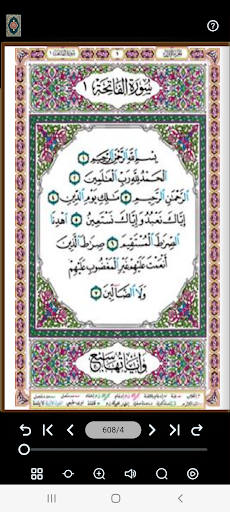 سورة الفاتحة ١
بِسْمِ اللَّهِ الرَّحْمَٰنِ الرَّحِيمِ ١
الْحَمْدُ لِلَّهِ رَبِّ الْعَالَمِينَ ٢
الرَّحْمَٰنِ الرَّحِيمِ ٣ مَالِكِ يَوْمِ الدِّينِ ٤
إِيَّاكَ نَعْبُدُ وَإِيَّاكَ نَسْتَعِينُ ٥ اهْدِنَا
الصِّرَاطَ الْمُسْتَقِيمَ ٦ صِرَاطَ الَّذِينَ
أَنْعَمْتَ عَلَيْهِمْ غَيْرِ الْمَغْضُوبِ عَلَيْهِمْ
وَلَا الضَّالِّينَ ٧
وآياتها سبع
608/4